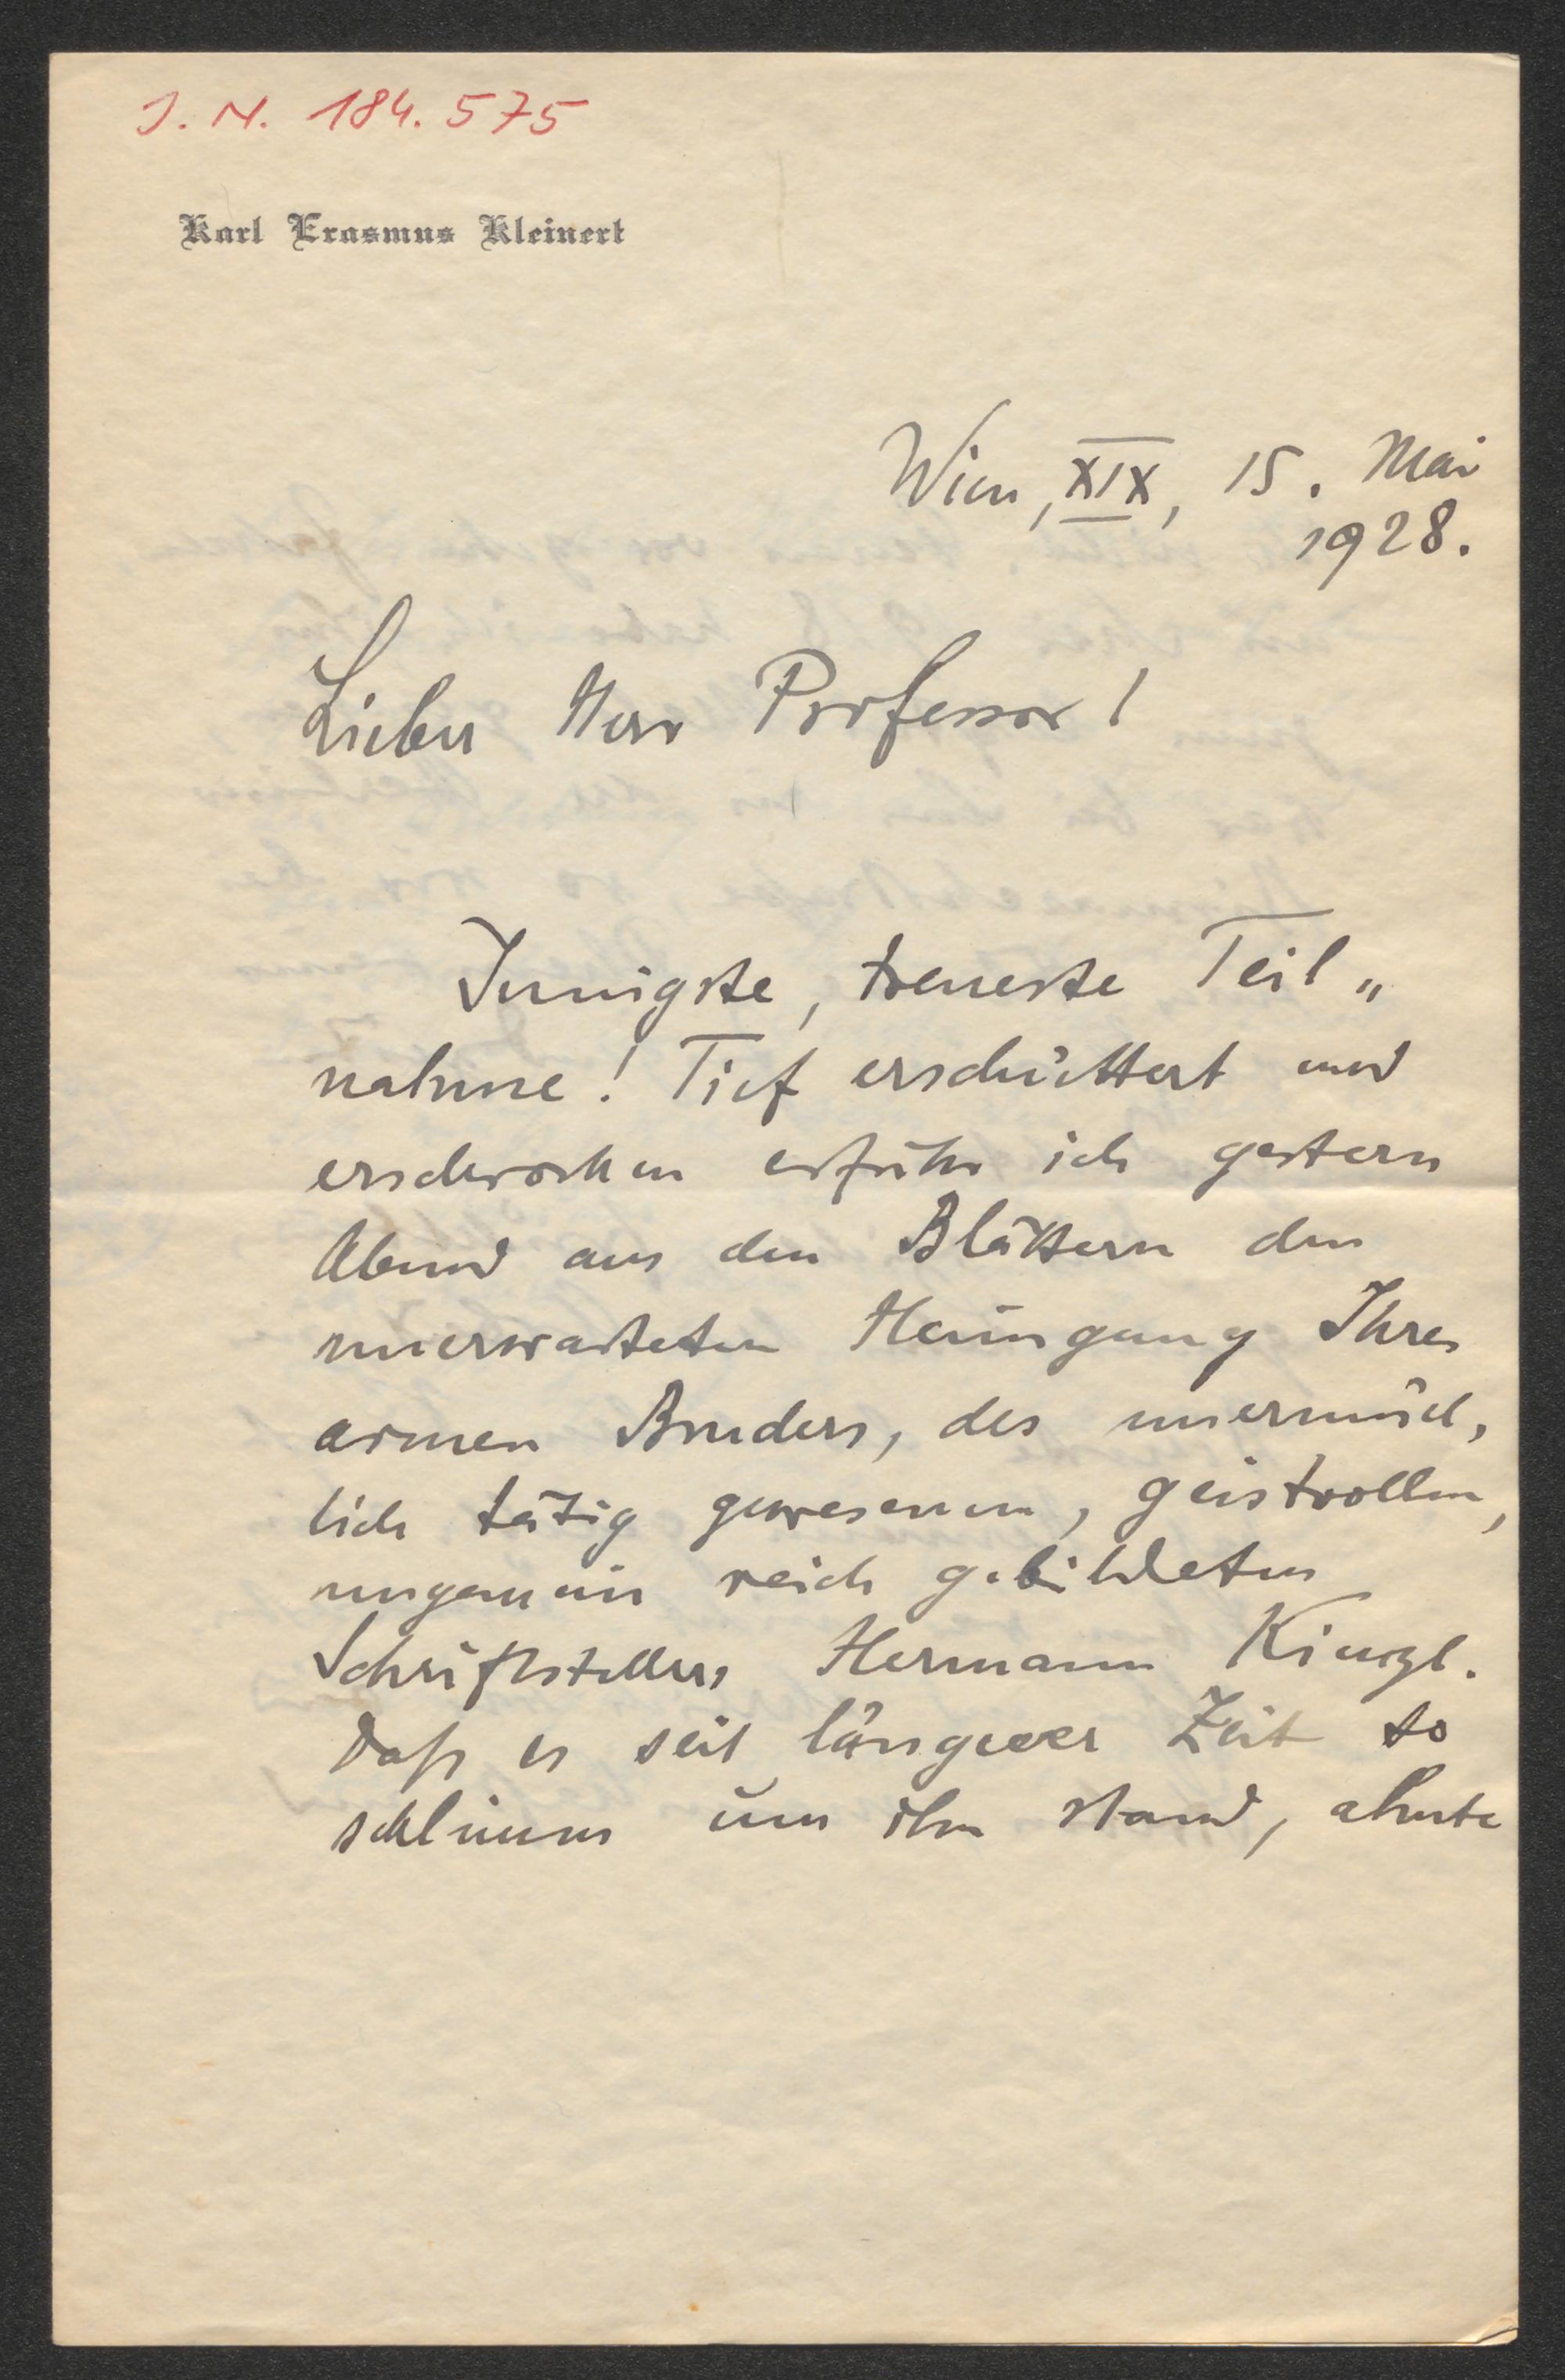 J. N. 184.575
Karl Erasmus Kleinert
Wien, XIX, 15. Mai
1928.
Lieber Herr Professor!
Innigste, treueste Teil„
nahme! Tief erschüttert und
erschrocken erfuhr ich gestern
Abend aus den Blättern den
unerwarteten Heimgang Ihres
armen Bruders, des unermüd„
lich tätig gewesenen, geistvollen,
ungemein reich gebildeten
Schriftstellers Hermann Kienzl.
Daß es seit längerer Zeit so
schlimm um ihn stand, ahnte